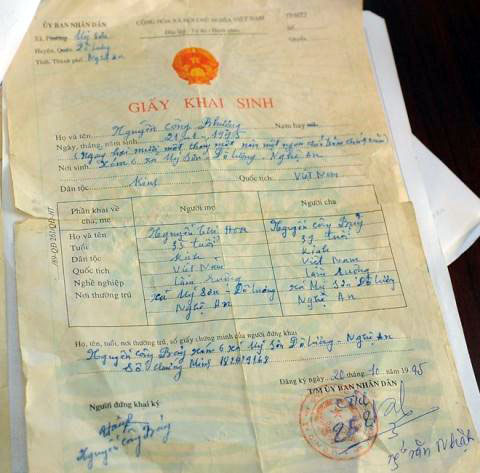 ỦY BAN NHÂN DÂN
CỘNG HÒA XÃ HỘI CHỦ NGHĨA VIỆT NAM
Xã, Phường Mỹ Sơn
Độc lập - Tự do - Hạnh phúc
Số
Huyện, Quận Đô Lương
Quyển
Tỉnh, Thành phố Nghệ An
GIẤY KHAI SINH
Họ và tên Nguyễn Công Phượng Nam hay nữ
Ngày, tháng, năm sinh 21-1-1995
Ngày hai mươi một tháng một năm một ngàn chín trăm chín năm
Nơi sinh Xóm 6 xã Mỹ Sơn Đô Lương - Nghệ An
Dân tộc Kinh Quốc tịch Việt Nam
Phần khai về cha, mẹ Người mẹ Người cha
Họ và tên Nguyễn Thị Hoa Nguyễn Công Bảy
Tuổi 35 tuổi tuổi
Dân tộc Kinh Kinh
Quốc tịch Việt Nam Việt Nam
Nghề nghiệp Làm ruộng Làm ruộng
Nơi thường trú xã Mỹ Sơn Đô Lương xã Mỹ Sơn Đô Lương
Nghệ An Nghệ An
Họ, tên, tuổi, nơi thường trú, số giấy chứng minh của người đứng khai
Nguyễn Công Bảy xóm 6 xã Mỹ Sơn Đô Lương - Nghệ An
Số chứng minh
Đăng ký ngày tháng năm 1995
T/M ỦY BAN NHÂN DÂN
Người đứng khai ký
Nguyễn Công Bảy